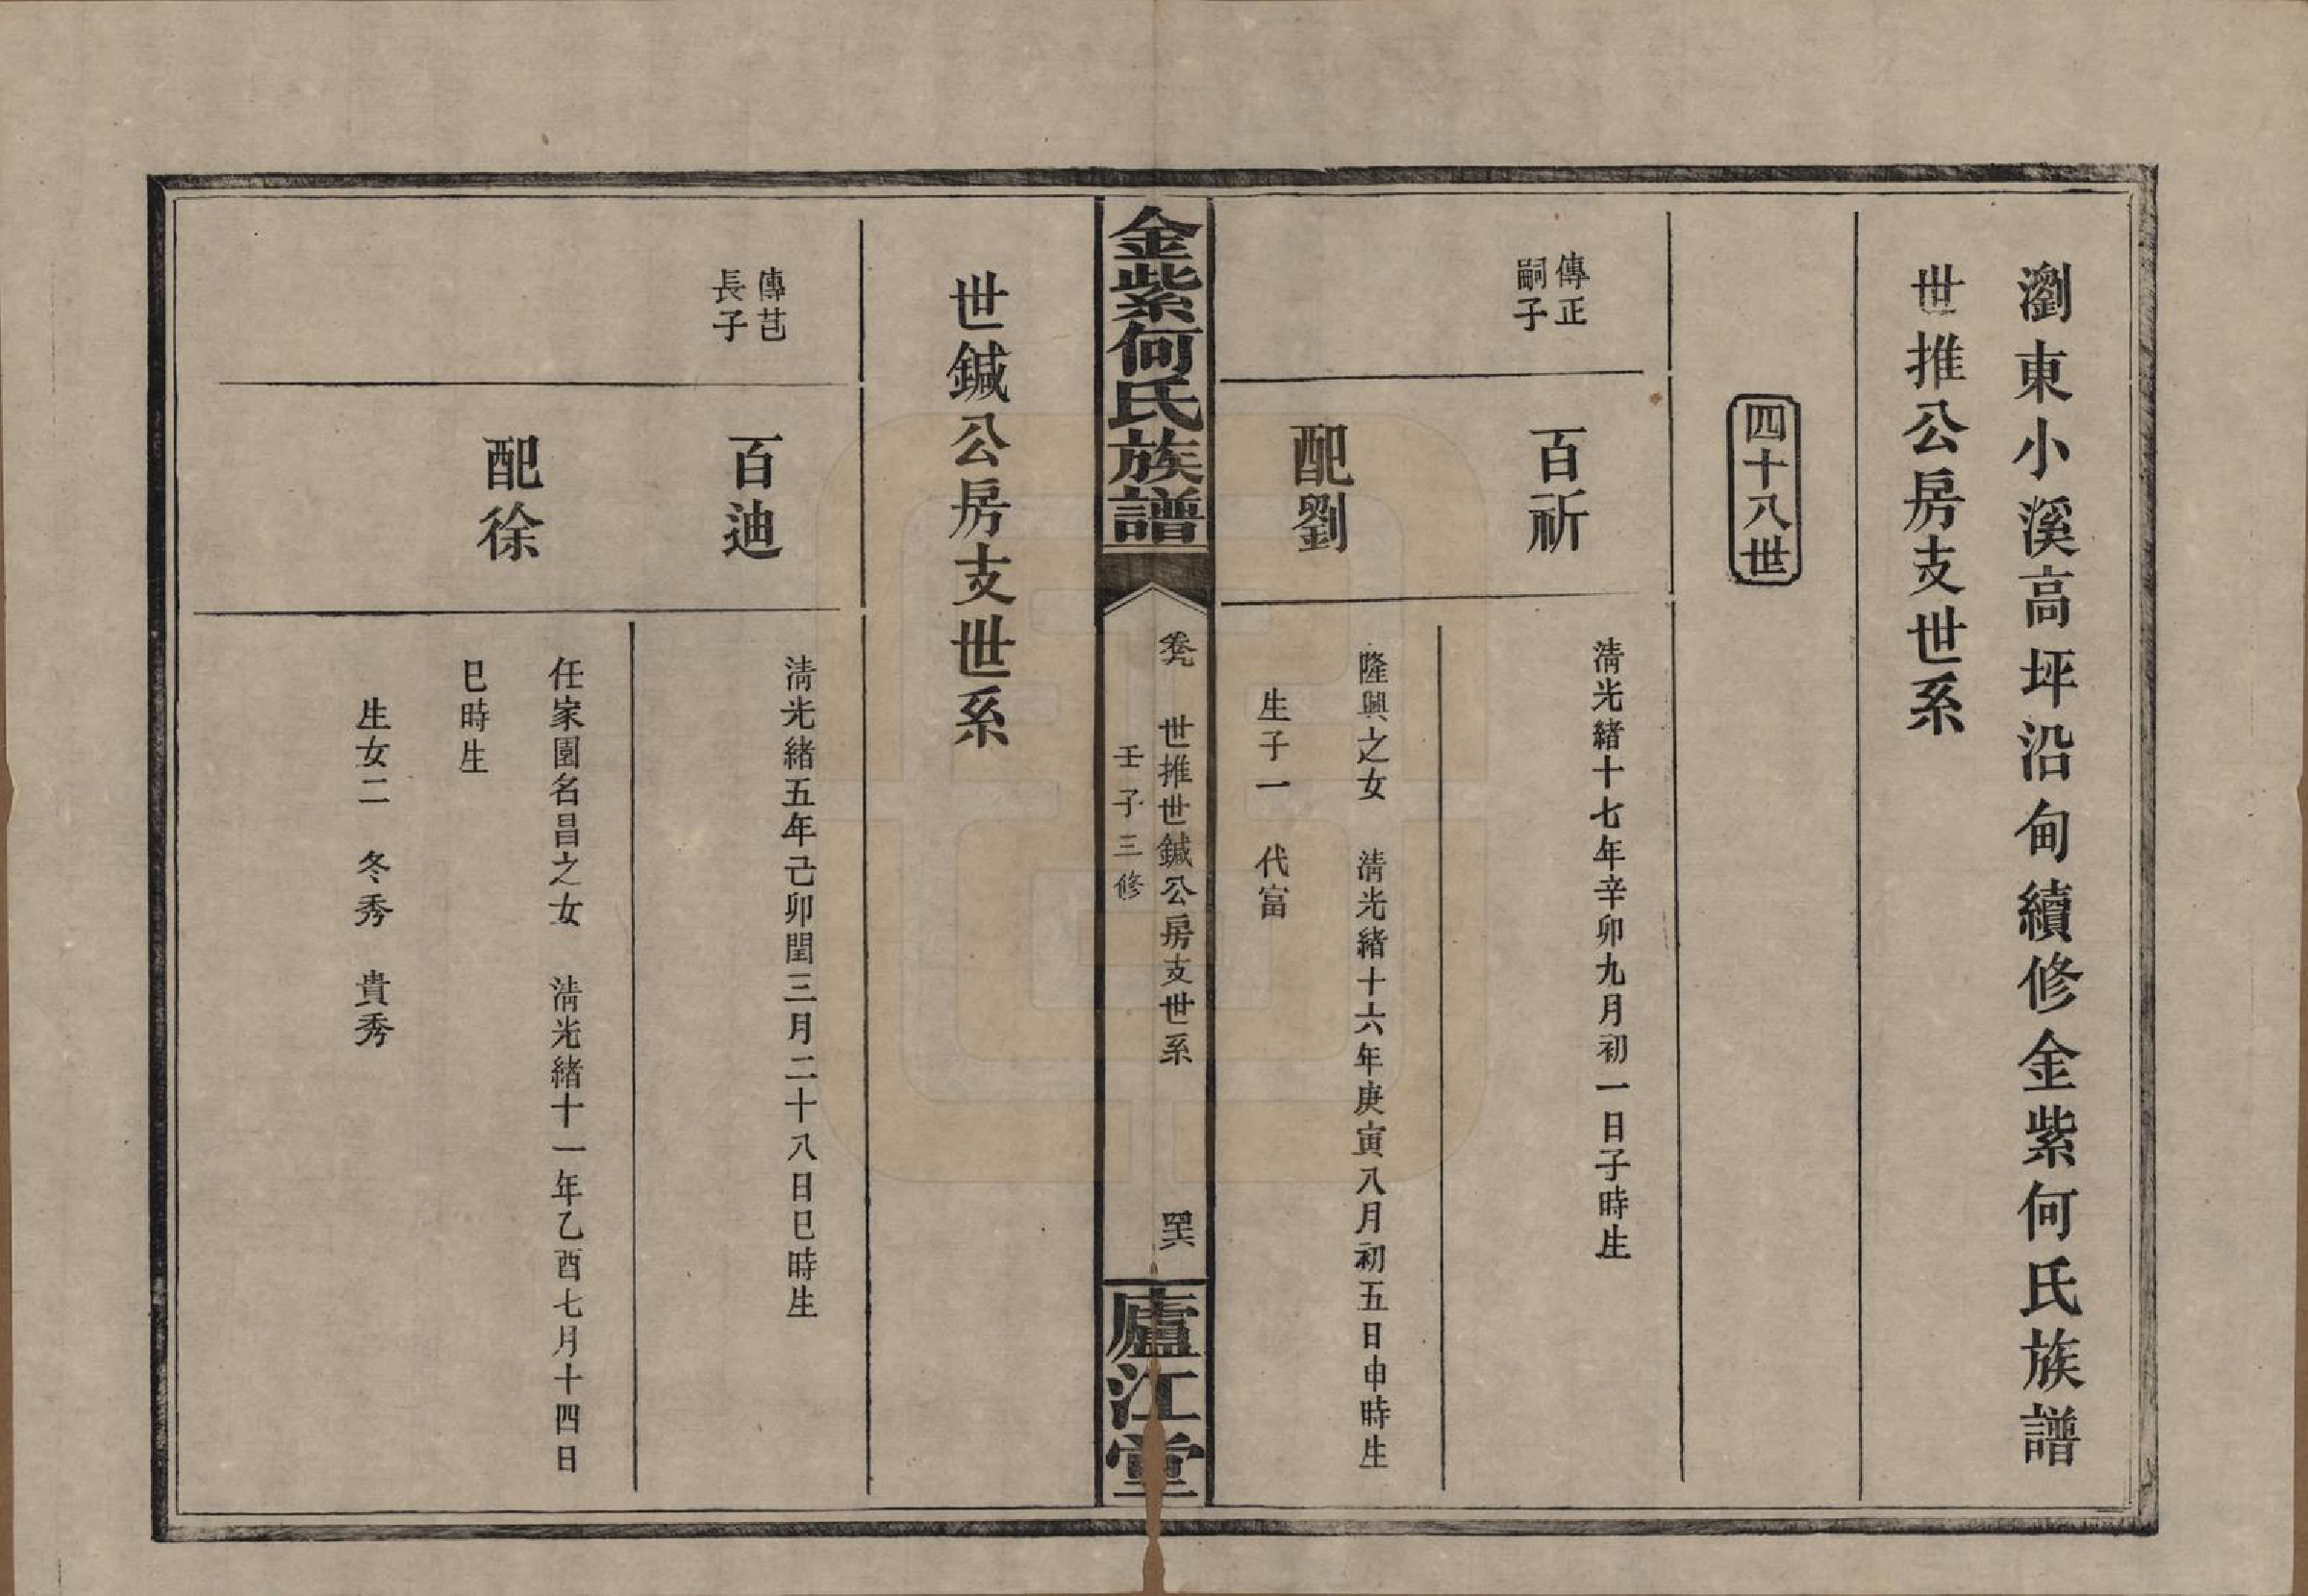 瀏東小溪高坪沿甸續修金紫何氏族譜
世推公房支世系
四十八世
傳正
嗣子
百祈
清光緒十七年辛卯九月初一日子時生
配劉
隆興之女　清光緒十六年庚寅八月初五日申時生
生子一　代富
金紫何氏族譜
卷九　世推世鍼公房支世系　四六
壬子三修
廬江堂
世鍼公房支世系
傳芑
長子
百迪
清光緒五年己卯閏三月二十八日巳時生
配徐
任家園名昌之女　清光緒十一年乙酉七月十四日
巳時生
生女二　冬秀　貴秀